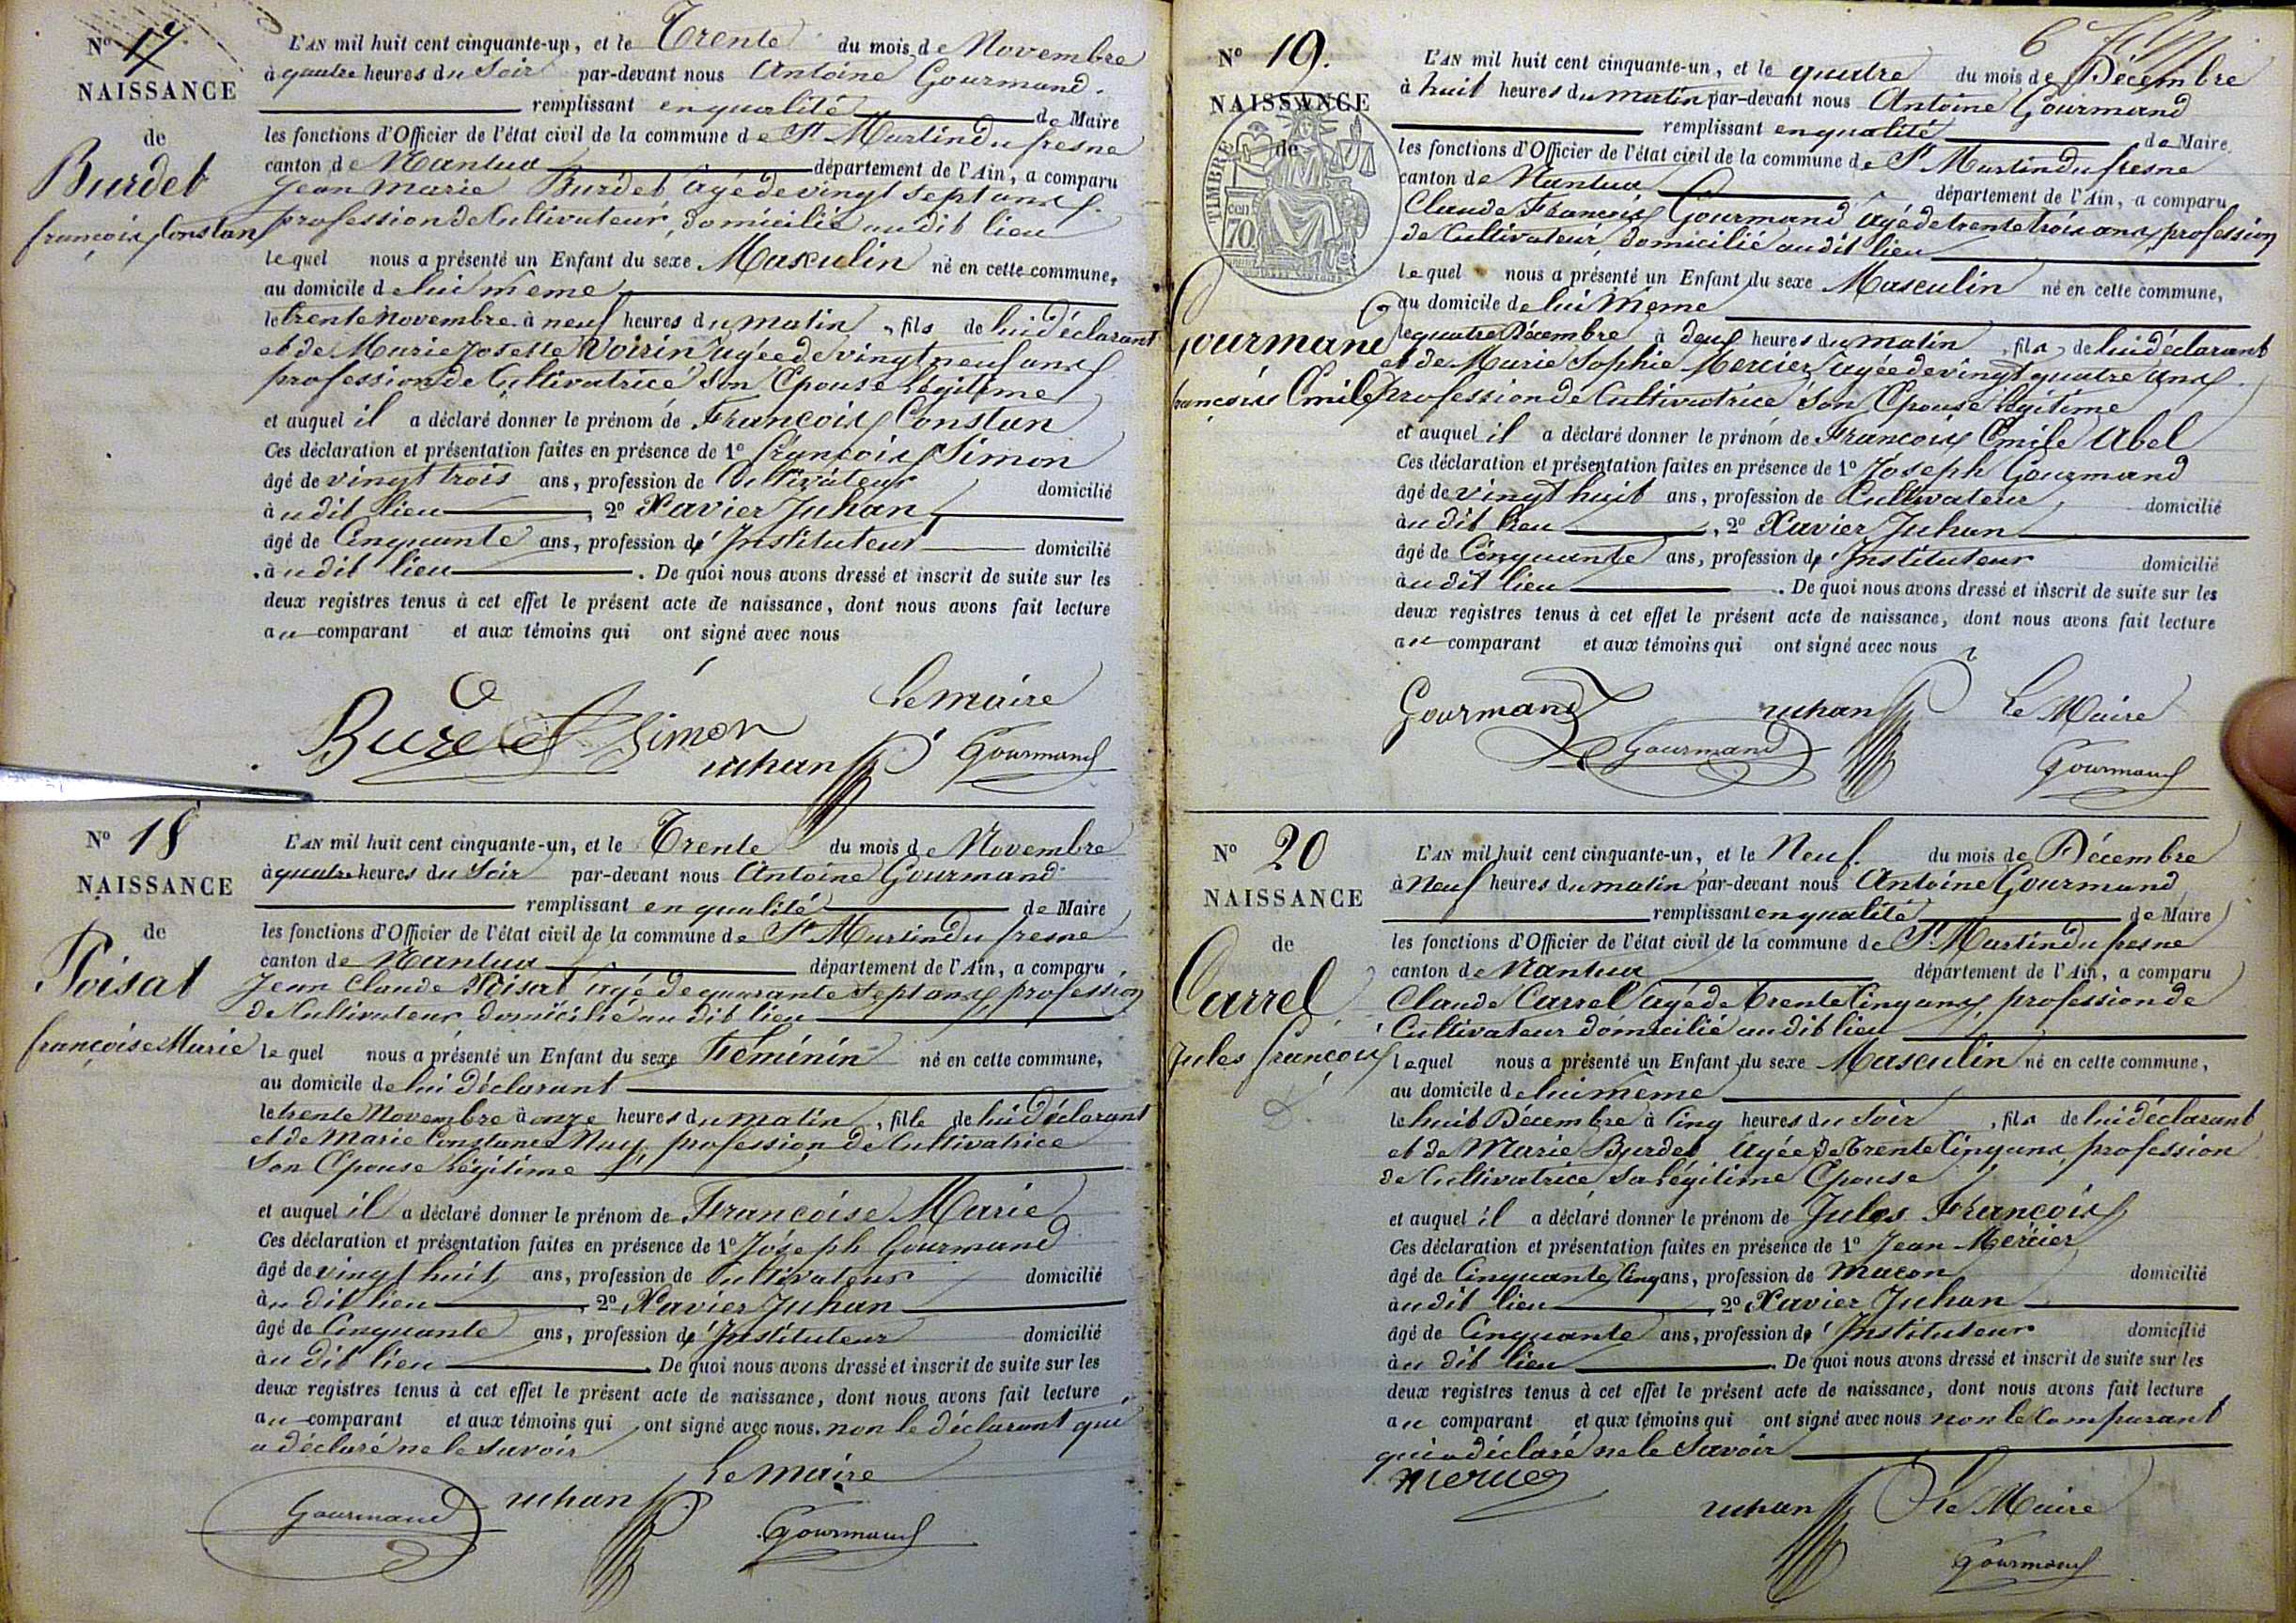 N° 17
NAISSANCE
de
Burdet
françois Constan
L'AN mil huit cent cinquante-un, et le Trente du mois de Novembre
à quatre heures du Soir par-devant nous Antoine Gourmand.
remplissant en qualité de Maire
les fonctions d'Officier de l'état civil de la commune de St Martin du fresne
canton de Nantua département de l'Ain, a comparu
Jean Marie Burdet âgé de vingt sept ans
profession de Cultivateur, domicilié au dit lieu
lequel nous a présenté un Enfant du sexe Masculin né en cette commune,
au domicile de lui même
le trente Novembre à neuf heures du matin, fils de lui déclarant
et de Marie Josette Voirin âgée de vingt neuf ans
profession de Cultivatrice son Epouse légitime
et auquel il a déclaré donner le prénom de François Constan
Ces déclaration et présentation faites en présence de 1° François Simon
âgé de vingt trois ans, profession de Cultivateur domicilié
à u dit lieu, 2° Xavier Juhan
âgé de Cinquante ans, profession d' Instituteur domicilié
à u dit lieu. De quoi nous avons dressé et inscrit de suite sur les
deux registres tenus à cet effet le présent acte de naissance, dont nous avons fait lecture
au comparant et aux témoins qui ont signé avec nous
Burdet Simon Le maire
Juhan Gourmand
N° 18
NAISSANCE
de
Poisat
françoise Marie
L'AN mil huit cent cinquante-un, et le Trente du mois de Novembre
à quatre heures du Soir par-devant nous Antoine Gourmand
remplissant en qualité de Maire
les fonctions d'Officier de l'état civil de la commune de St Martin du fresne
canton de Nantua département de l'Ain, a comparu
Jean Claude Poisat âgé de quarante sept ans, profession
de Cultivateur domicilié au dit lieu
lequel nous a présenté un Enfant du sexe Féminin né en cette commune,
au domicile de lui déclarant
le trente Novembre à onze heures du matin, fille de lui déclarant
et de Marie Constance Nuy, profession de Cultivatrice
son Epouse légitime
et auquel il a déclaré donner le prénom de Françoise Marie
Ces déclaration et présentation faites en présence de 1° Joseph Gourmand
âgé de vingt huit ans, profession de Cultivateur domicilié
à u dit lieu, 2° Xavier Juhan
âgé de Cinquante ans, profession d' Instituteur domicilié
à u dit lieu. De quoi nous avons dressé et inscrit de suite sur les
deux registres tenus à cet effet le présent acte de naissance, dont nous avons fait lecture
au comparant et aux témoins qui ont signé avec nous. non le déclarant qui
a déclaré ne le savoir
Le maire
Gourmand Juhan Gourmand
6
N° 19.
NAISSANCE
de
TIMBRE
70 cen
Gourmand
françois Emile
L'AN mil huit cent cinquante-un, et le quatre du mois de Décembre
à huit heures du matin par-devant nous Antoine Gourmand
remplissant en qualité de Maire
les fonctions d'Officier de l'état civil de la commune de St Martin du fresne
canton de Nantua département de l'Ain, a comparu
Claude François Gourmand âgé de trente trois ans, profession
de Cultivateur domicilié au dit lieu
lequel nous a présenté un Enfant du sexe Masculin né en cette commune,
au domicile de lui même
le quatre Décembre à deux heures du matin, fils de lui déclarant
et de Marie Sophie Mercier, âgée de vingt quatre ans
profession de Cultivatrice son Epouse légitime
et auquel il a déclaré donner le prénom de François Emile Abel
Ces déclaration et présentation faites en présence de 1° Joseph Gourmand
âgé de vingt huit ans, profession de Cultivateur domicilié
à u dit lieu, 2° Xavier Juhan
âgé de Cinquante ans, profession d' Instituteur domicilié
à u dit lieu. De quoi nous avons dressé et inscrit de suite sur les
deux registres tenus à cet effet le présent acte de naissance, dont nous avons fait lecture
au comparant et aux témoins qui ont signé avec nous
Gourmand Juhan Le Maire
Gourmand Gourmand
N° 20
NAISSANCE
de
Carrel
Jules françois
L'AN mil huit cent cinquante-un, et le Neuf. du mois de Décembre
à Neuf heures du matin par-devant nous Antoine Gourmand
remplissant en qualité de Maire
les fonctions d'Officier de l'état civil de la commune de St Martin du fresne
canton de Nantua département de l'Ain, a comparu
Claude Carrel âgé de trente Cinq ans, profession de
Cultivateur domicilié au dit lieu
lequel nous a présenté un Enfant du sexe Masculin né en cette commune,
au domicile de lui même
le huit Décembre à Cinq heures du Soir, fils de lui déclarant
et de Marie Burdet, âgée de trente Cinq ans, profession
de Cultivatrice sa légitime Epouse
et auquel il a déclaré donner le prénom de Jules François
Ces déclaration et présentation faites en présence de 1° Jean Mercier
âgé de Cinquante Cinq ans, profession de Macon domicilié
à u dit lieu, 2° Xavier Juhan
âgé de Cinquante ans, profession d' Instituteur domicilié
à u dit lieu. De quoi nous avons dressé et inscrit de suite sur les
deux registres tenus à cet effet le présent acte de naissance, dont nous avons fait lecture
au comparant et aux témoins qui ont signé avec nous non le Comparant
qui a déclaré ne le savoir
Mercier
Juhan Le Maire
Gourmand